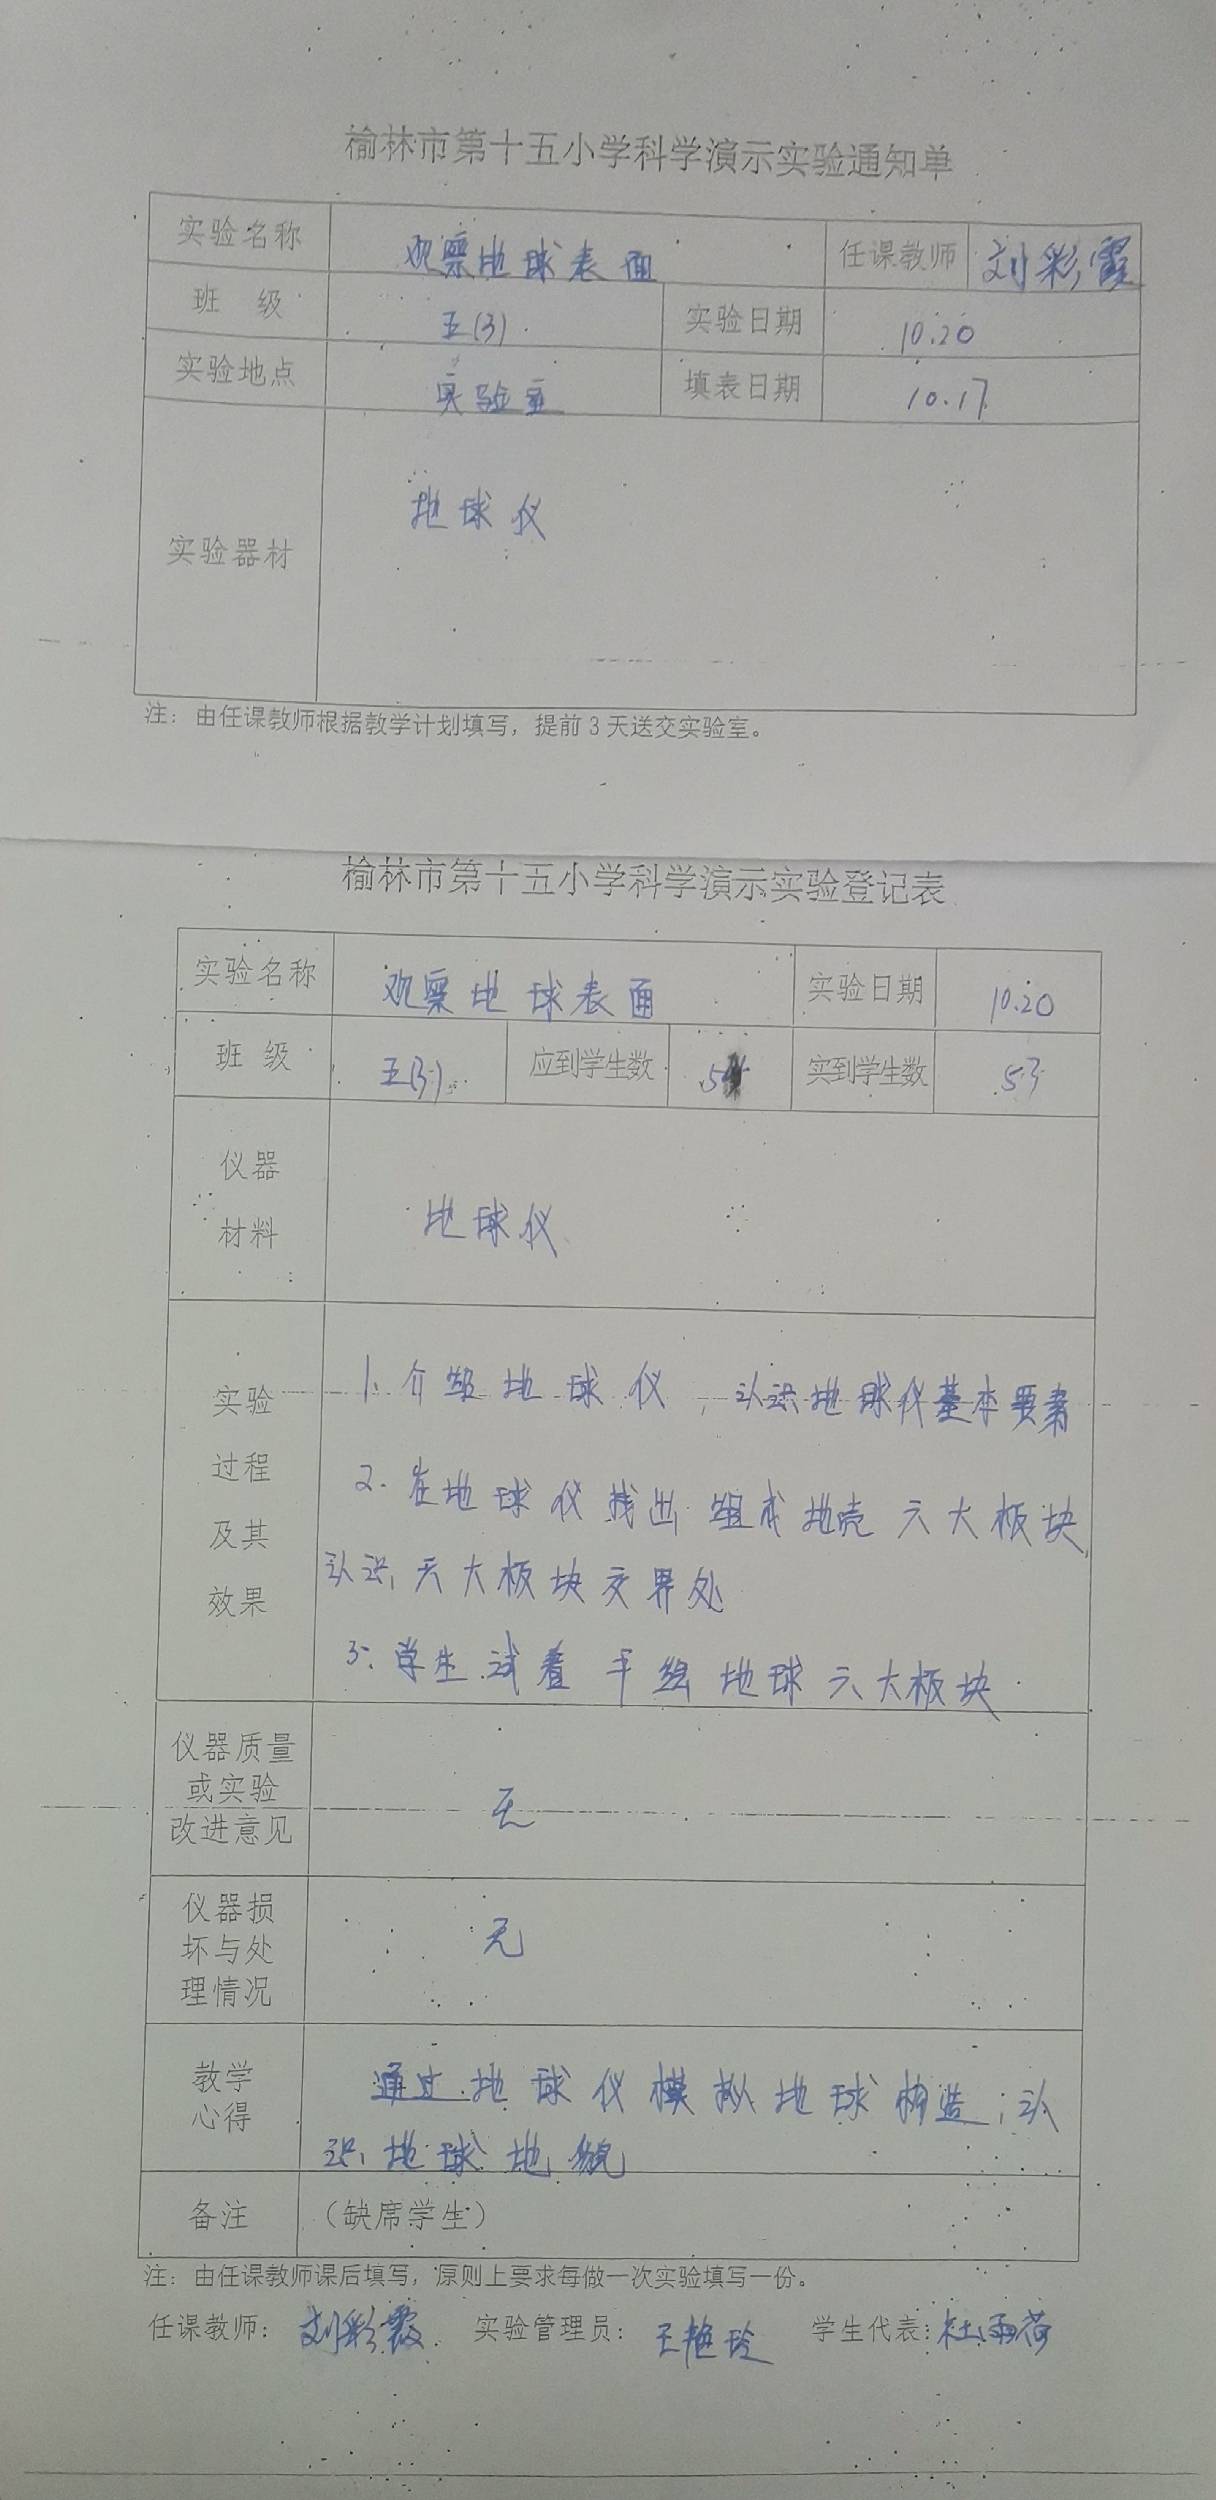 榆林市第十五小学科学演示实验通知单
实验名称 观察地球表面 任课教师 刘彩霞
班 级 五(3) 实验日期 10.20
实验地点 实验室 填表日期 10.17
实验器材 地球仪
注：由任课教师根据教学计划填写，提前3天送交实验室。
榆林市第十五小学科学演示实验登记表
实验名称 观察地球表面 实验日期 10.20
班 级 五(3) 应到学生数 实到学生数 53
仪器
材料
地球仪
实验
过程
及其
效果
1. 介绍地球仪，认识地球仪基本要素
2. 在地球仪找出组成地壳六大板块,
认识六大板块交界处
3. 学生试着手绘地球六大板块.
仪器质量
或实验
改进意见
无
仪器损
坏与处
理情况
无
教学
心得
通过地球仪模拟地球构造；认
识地球地貌
备注 （缺席学生）
注：由任课教师课后填写，原则上要求每做一次实验填写一份。
任课教师：刘彩霞 实验管理员：王艳玲 学生代表：杜雨荷